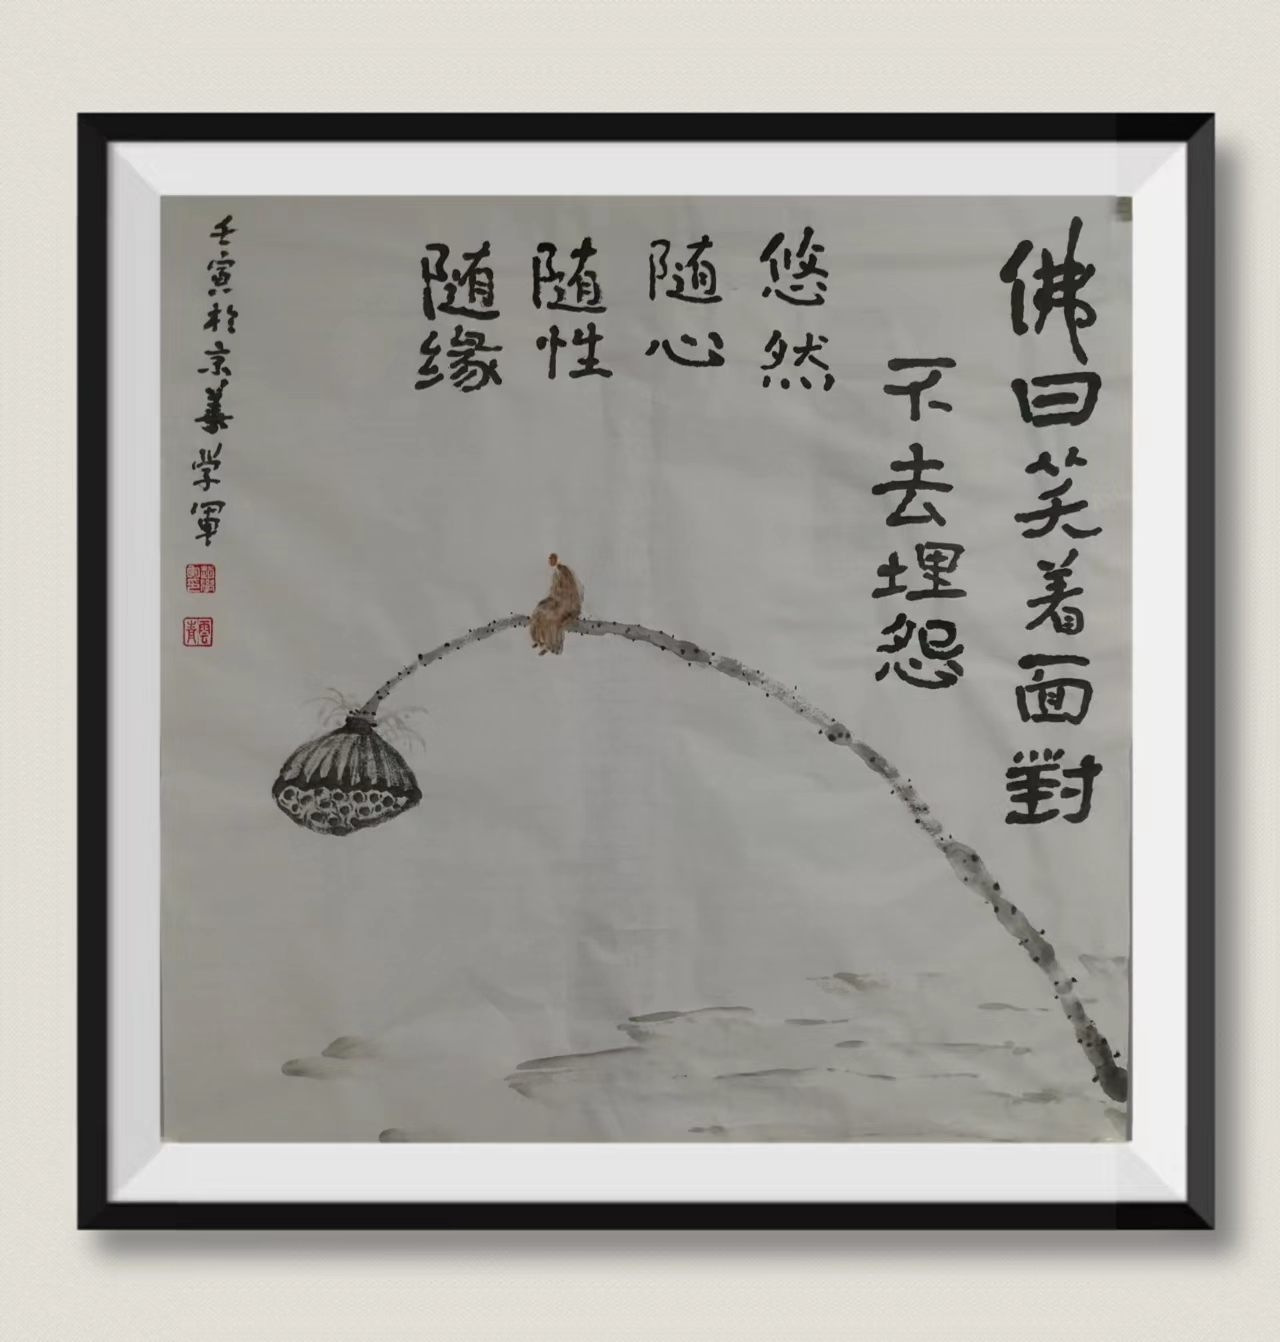 佛曰笑着面對
不去埋怨
悠然
随心
随性
随缘
壬寅於京華学軍
雲青